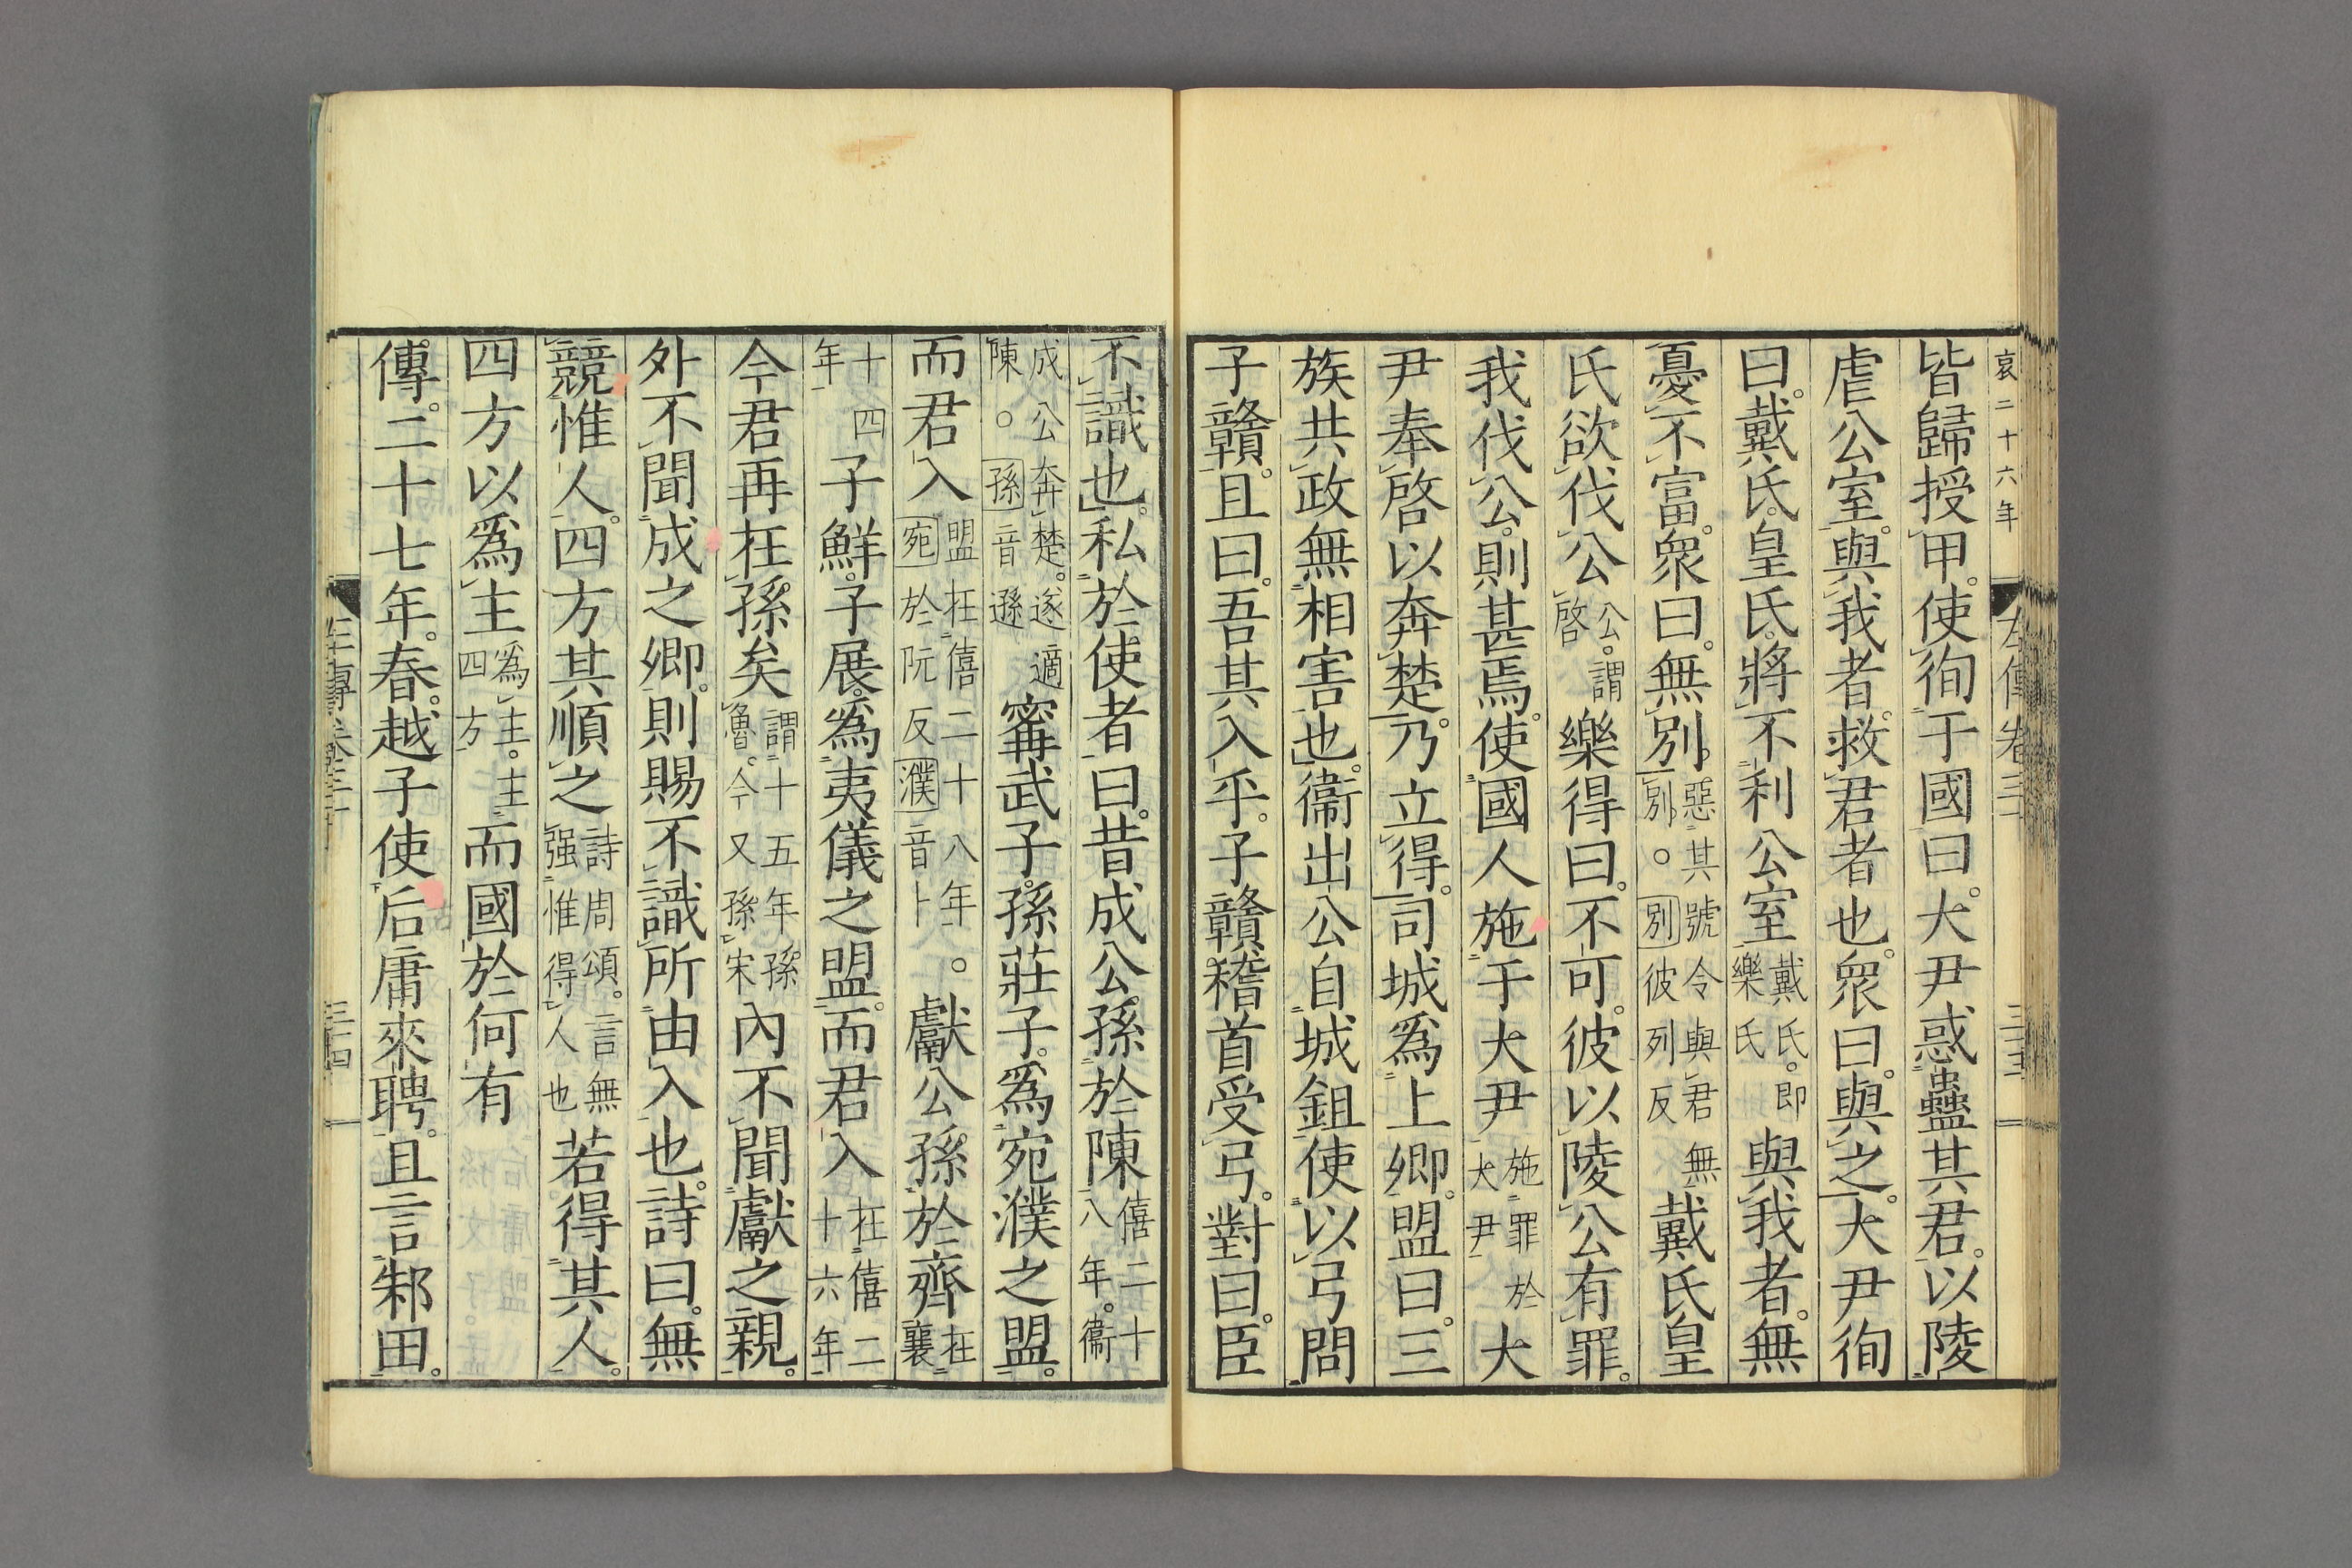 哀二十六年
左傳卷三十
三十三
皆歸授甲。使徇于國曰。大尹惑蠱其君。以陵
虐公室。與我者。救君者也。衆曰。與之。大尹徇
曰。戴氏。皇氏。將不利公室戴氏。即樂氏與我者。無
憂不富。衆曰。無別。惡其號令與君無別。○別彼列反戴氏皇
氏欲伐公公。謂啓樂得曰。不可。彼以陵公有罪。
我伐公。則甚焉。使國人施于大尹施罪於大尹大
尹奉啓以奔楚。乃立得。司城爲上卿。盟曰。三
族共政無相害也。衞出公自城鉏使以弓問
子贛。且曰。吾其入乎。子贛。稽首受弓。對曰。臣
不識也。私於使者曰。昔成公。孫於陳僖二十八年。衞
成公奔楚。遂適陳。○孫音遜甯武子。孫莊子。爲宛濮之盟。
而君入盟在僖二十八年。○宛於阮反濮音卜獻公孫於齊在襄
十四年子鮮。子展。爲夷儀之盟。而君入在僖二十六年
今君再在孫矣謂十五年孫魯。今又孫宋內不聞獻之親。
外不聞成之卿。則賜不識所由入也。詩曰。無
競惟人。四方其順之詩周頌。言無强惟得人也若得其人。
四方以爲主爲主。主四方而國於何有
傳。二十七年。春。越子使后庸來聘。且言邾田。
三十四